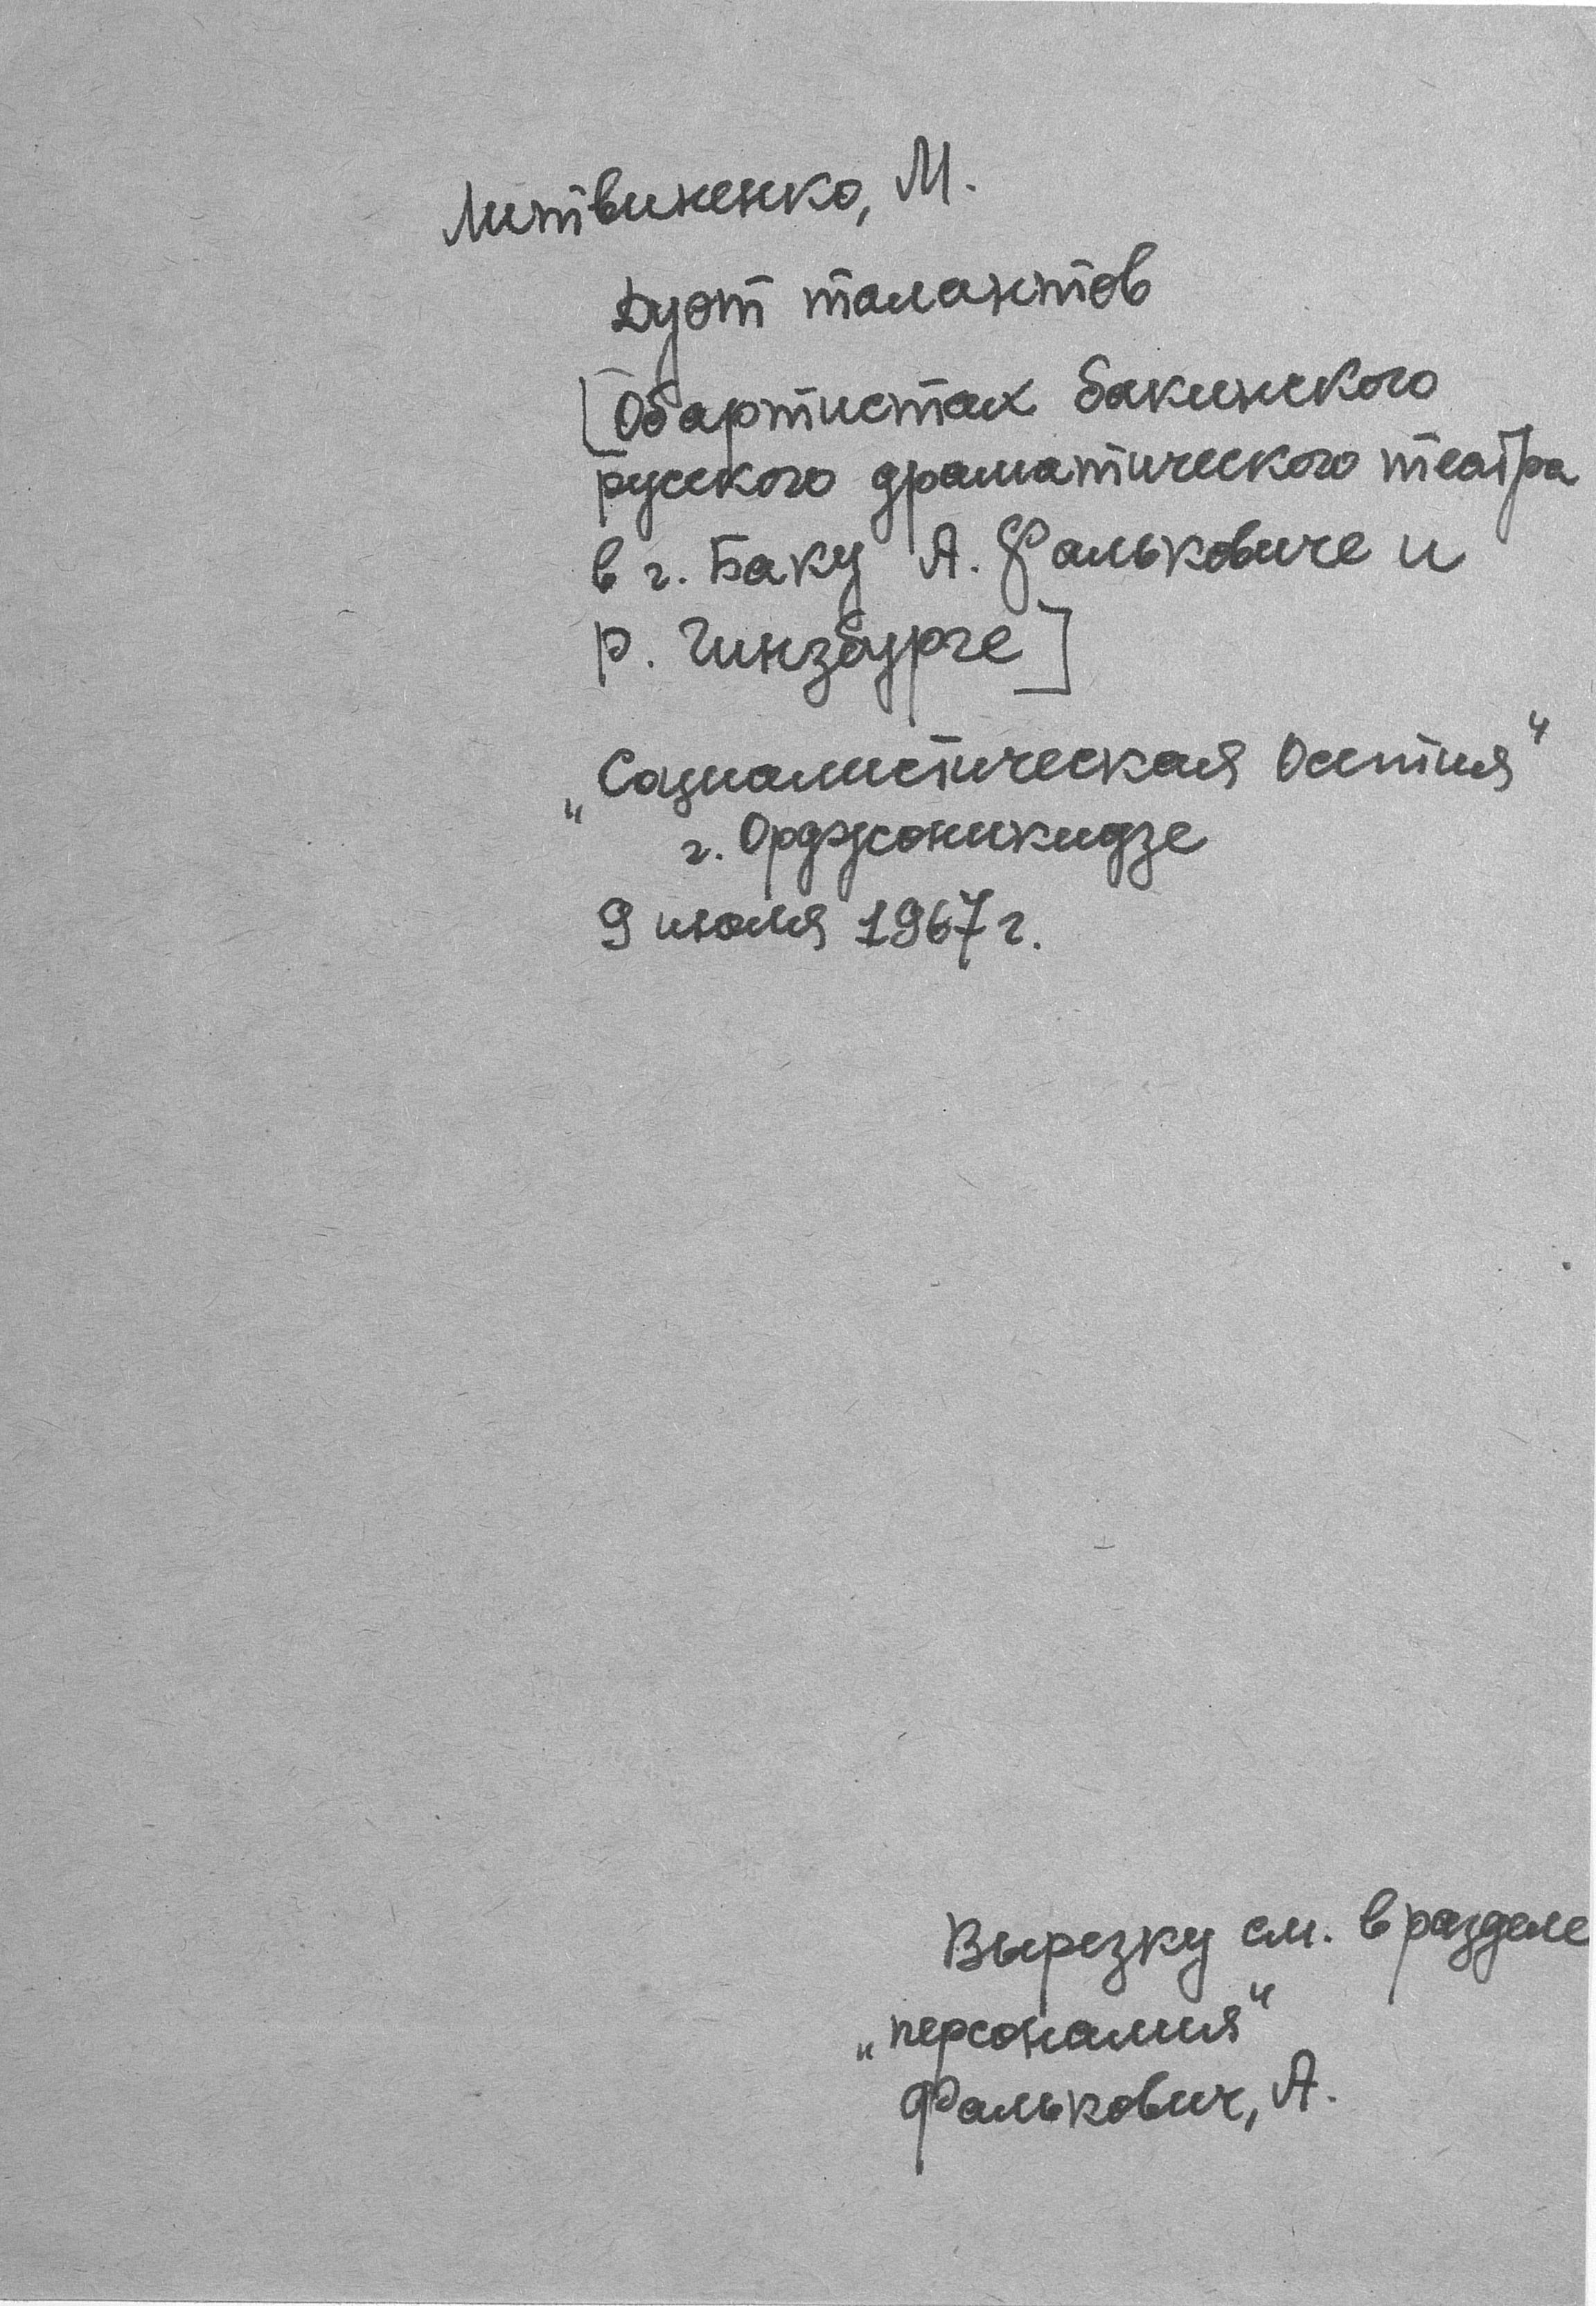 Литвиненко, М.
Дуэт талантов
[Об артистах бакинского
русского драматического театра
в г. Баку А. Фальковиче и
Р. Гинзбурге]
„Социалистическая Осетия“
г. Орджоникидзе
9 июля 1967 г.
Вырезку см. в разделе
„персоналия“
Фалькович, А.